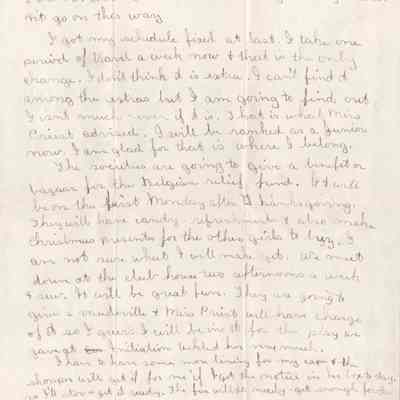 not go on this way
I got my schedule fixed at last. I take one
period of a week now & that is the only
change. I don't think it is extra. I can't find it
among the extras but I am going to find out
It isn't much ever if it is. That is what Miss
Priest advised. I will be ranked as a Junior
now. I am glad for that is where I belong.
The societies are going to give a benefit or
bazaar for the Belgian relief fund. It will
be on the first Monday after Thanksgiving.
They will have candy, refreshments & also make
Christmas presents for the other girls to buy. I
am not sure what I will make yet. We meet
down at the club house two afternoons a week
& sew. It will be great fun. They are going to
give a vaudeville & Miss Priest will have charge
of it so I guess I will be in it for the play we
gave at Initiation tickled her very much.
I have to have some more lining for my coat & the
will get it for me if I get the notice in his box to-day
so I'll stop & get it ready. The fur will get enough for the